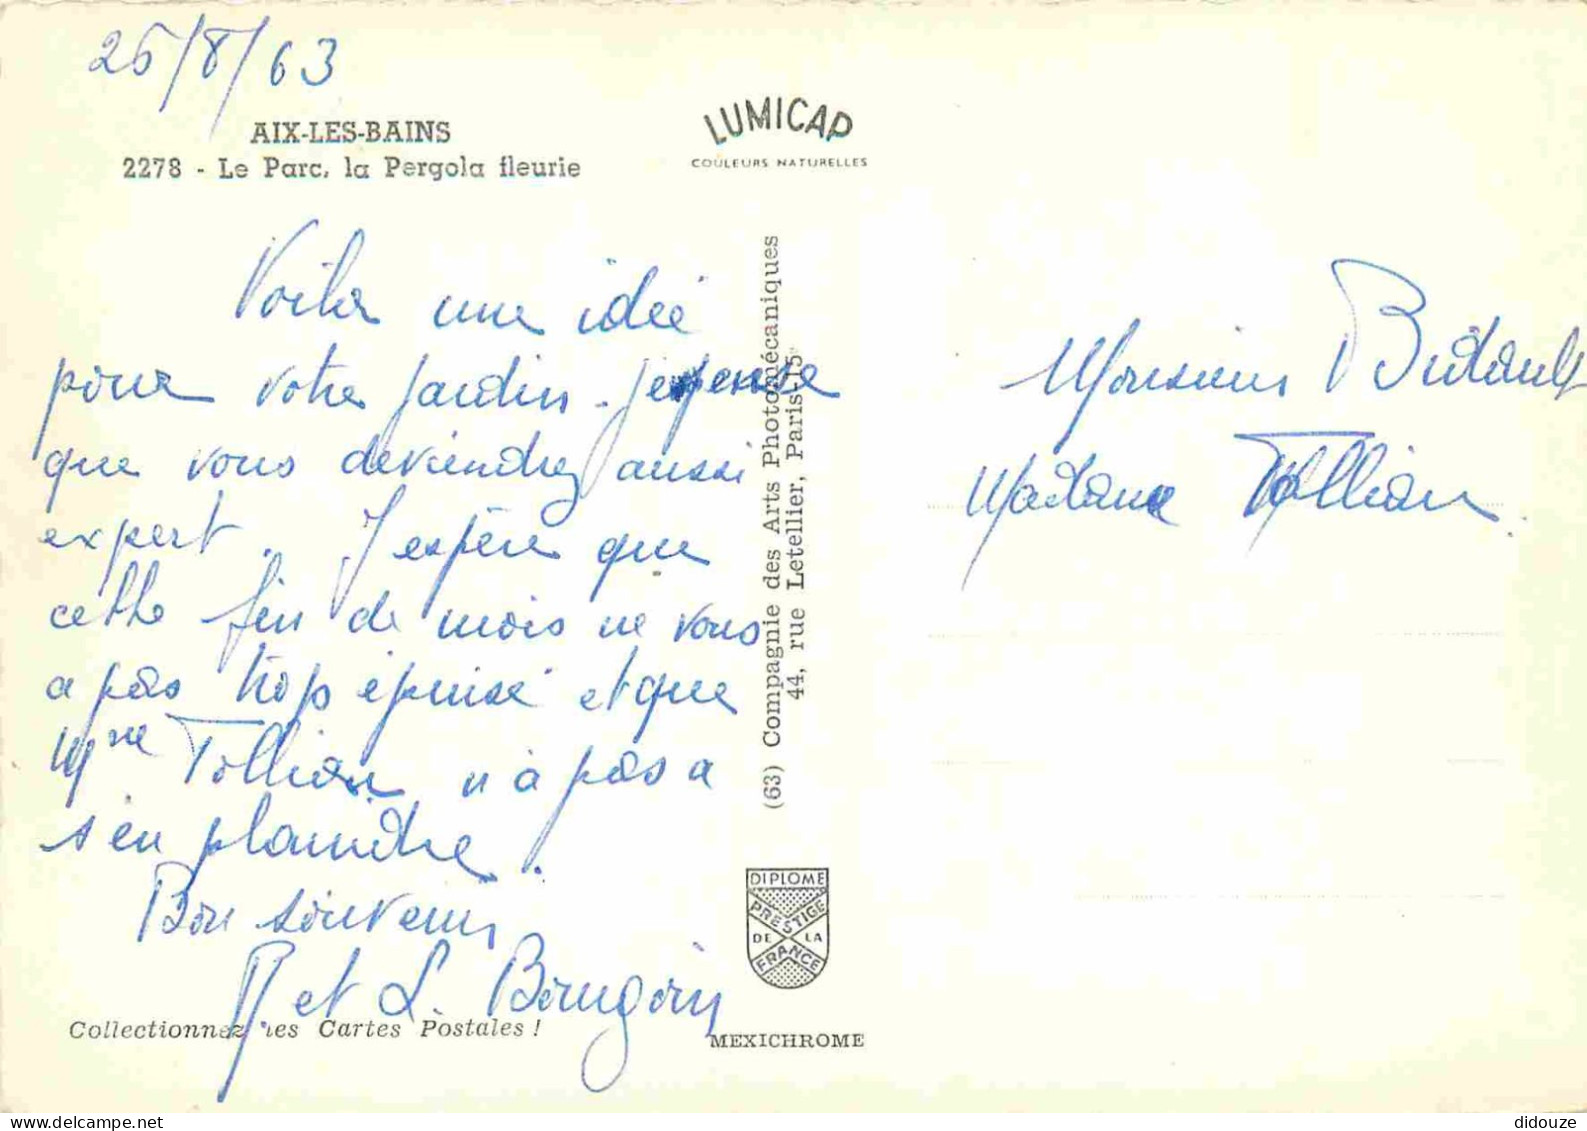 25/8/63
AIX-LES-BAINS
2278 - Le Parc, la Pergola fleurie
LUMICAP
COULEURS NATURELLES
Voila une idée
pour votre jardin. je pense
que vous deviendrez aussi
expert. J'espère que
cette fin de mois ne vous
a pas trop épuisé et que
Mme Tollian n'a pas a
s'en plaindre.
Bon souvenir
et L. Bourgoin
Collectionnez les Cartes Postales !
(63) Compagnie des Arts Photomécaniques
44, rue Letellier, Paris-15
DIPLOME
PRESTIGE
DE LA
FRANCE
MEXICHROME
Monsieur
Madame Tollian
didouze